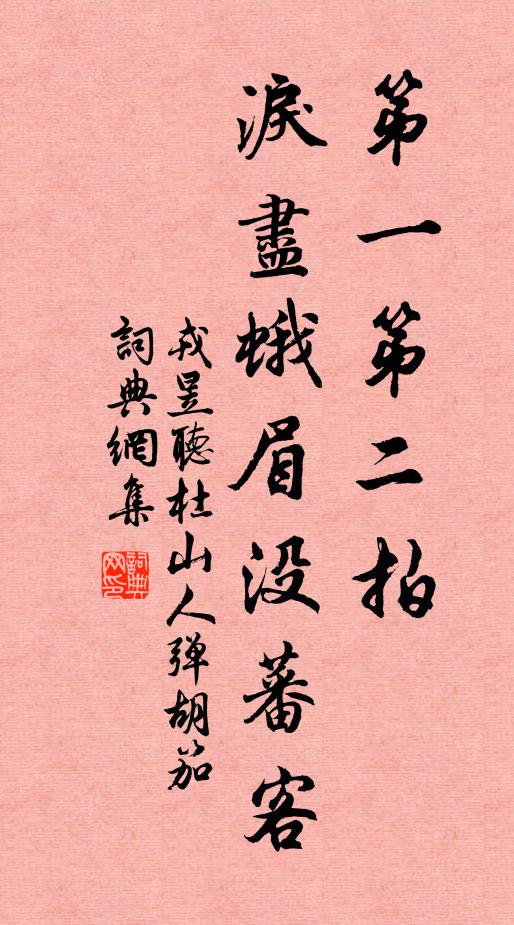 第一第二拍
淚盡蛾眉没蕃客
戎昱聽杜山人弹胡笳
詞典網集
詞典網印